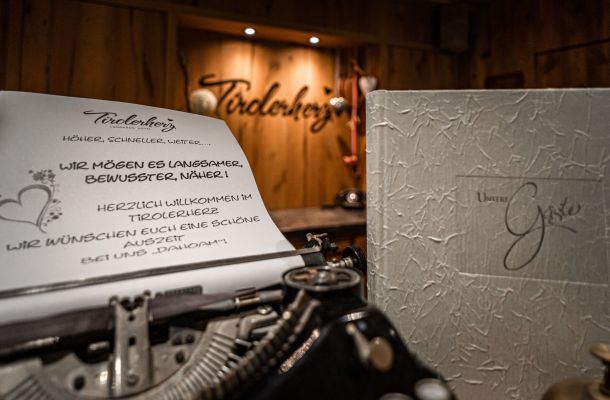 Tirolerherz
Tirolerherz
HÖHER, SCHNELLER, WEITER....
WIR MÖGEN ES LANGSAMER,
BEWUSSTER, NÄHER !
HERZLICH WILLKOMMEN IM
TIROLERHERZ
WIR WÜNSCHEN EUCH EINE SCHÖNE
AUSZEIT
BEI UNS „DAHOAM“!
Unsere
Gäste